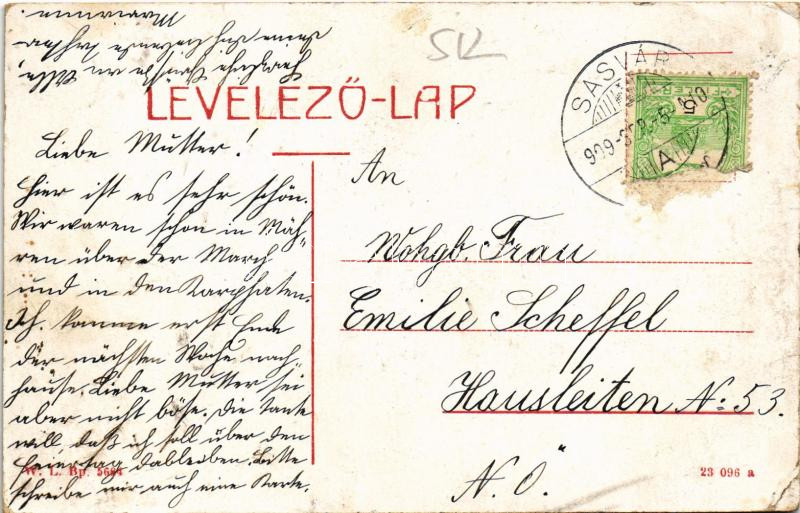 SK
LEVELEZŐ-LAP
SASVÁR
909
5
A
Liebe Mutter!
Hier ist es sehr schön.
Wir waren schon in Mäh-
ren über der March
und in den Karphaten.
Ich komme erst Ende
der nächsten Woche nach
hause. Liebe Mutter sei
aber nicht böse. Die Tante
will, daß ich soll über den
Feiertag dableiben. Bitte
schreibe mir auch eine Karte.
An
Wohgb. Frau
Emilie Scheffel
Hausleiten No: 53.
N. Ö.
W. L. Bp. 5664
23 096 a